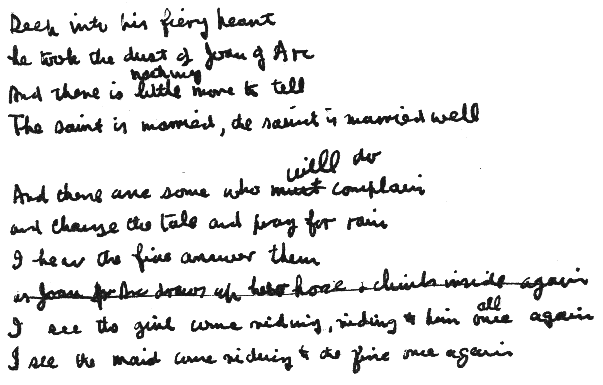 Deep into his fiery heart
he took the dust of Joan of Arc
nothing
And there is little more to tell
The saint is married, the saint is married well
will do
And there are some who must complain
and change the tale and pray for rain
I hear the fire answer them
as Joan of Arc draws up her hose & climbs inside again
all
I see the girl come riding, riding to him once again
I see the maid come riding to the fire once again